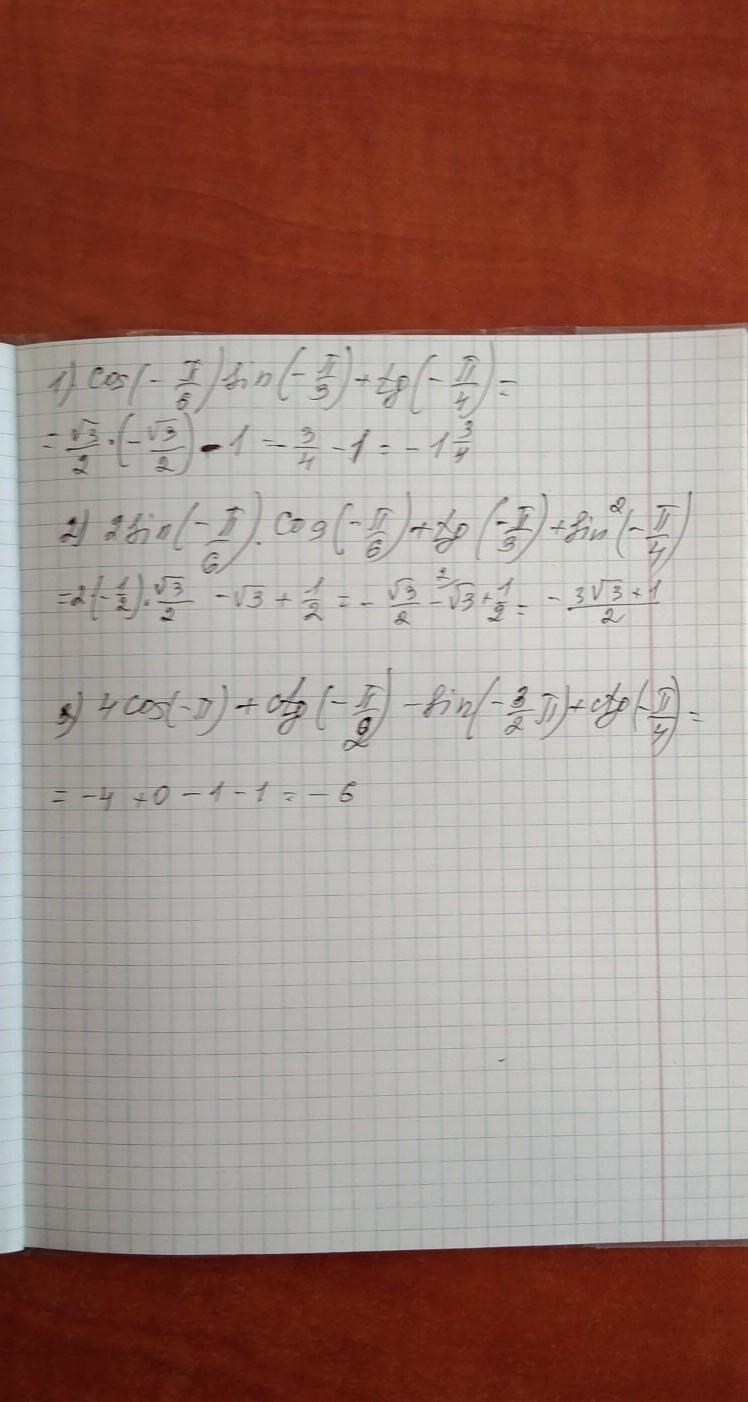 1) cos(-π/6) sin(-π/3) + tg(-π/4) =
= √3/2 · (-√3/2) - 1 = -3/4 - 1 = -1 3/4
2) 2 sin(-π/6) · cos(-π/6) + tg(-π/3) + sin²(-π/4)
= 2(-1/2) · √3/2 - √3 + 1/2 = -√3/2 - √3 + 1/2 = -(3√3 + 1)/2
3) 4 cos(-π) + ctg(-π/2) - sin(-3/2 π) + ctg(-π/4) =
= -4 + 0 - 1 - 1 = -6